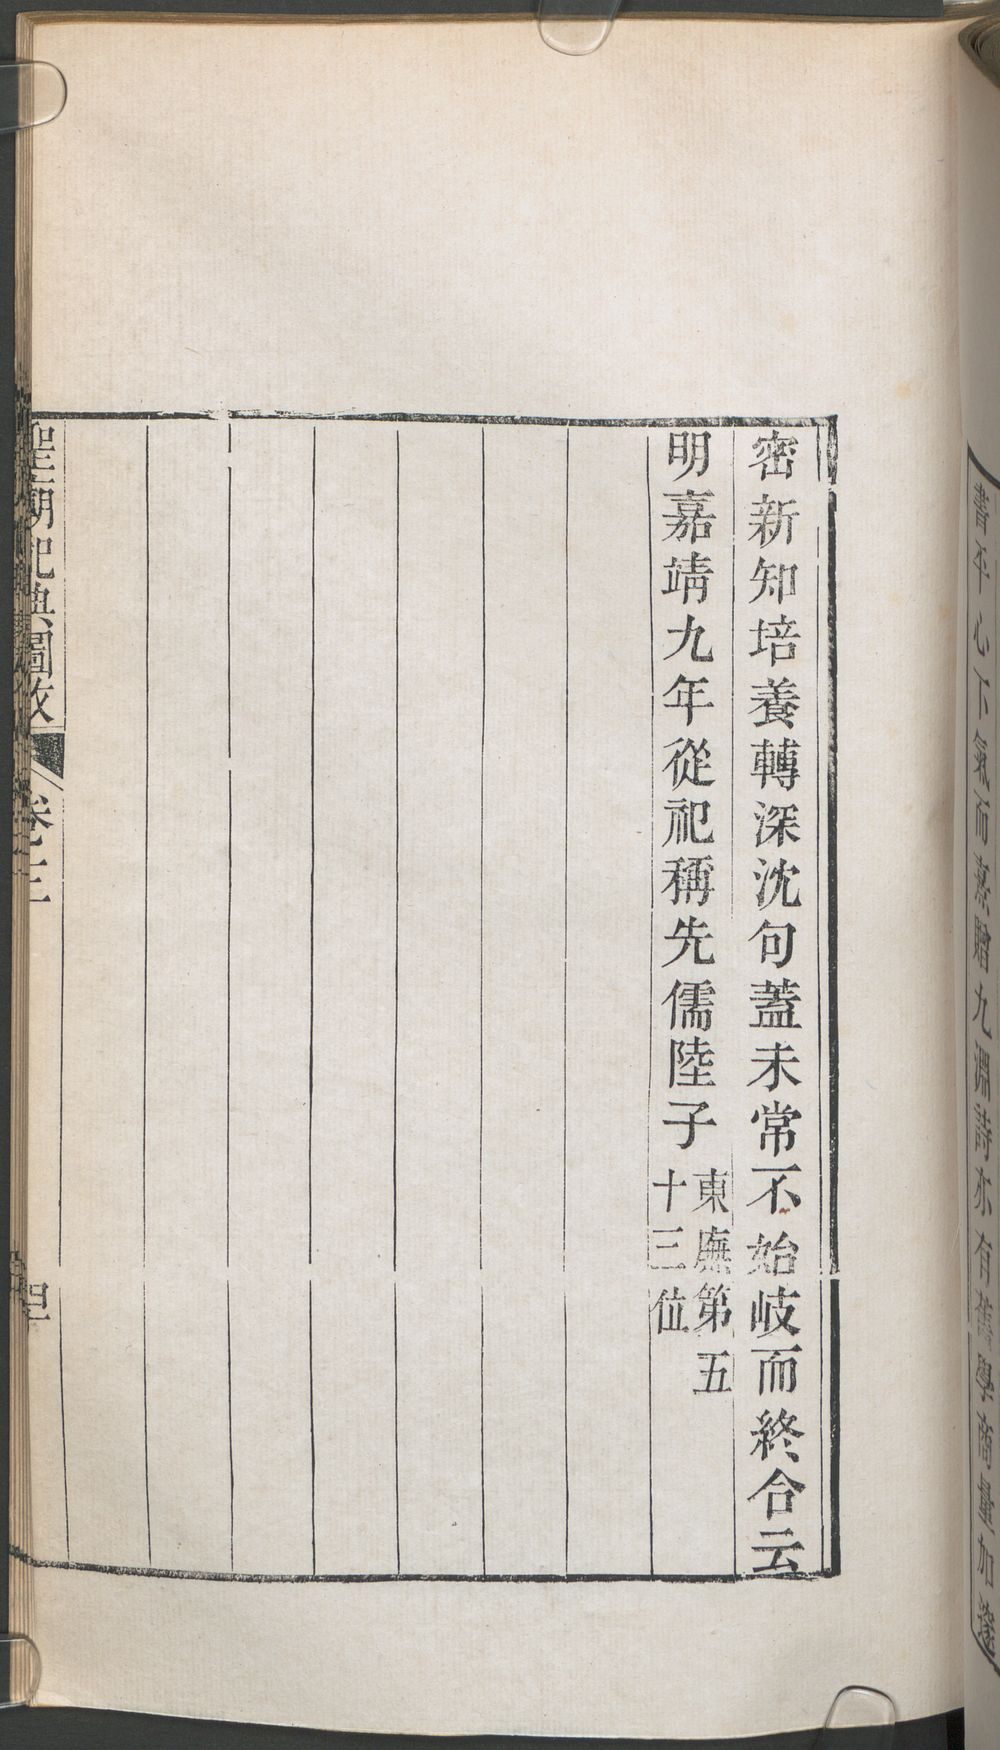 書平心下氣而
贈九淵詩亦有舊學商量加邃
密新知培養轉深沈句蓋未常不始岐而終合云
明嘉靖九年從祀稱先儒陸子
東廡第五
十三位
聖廟祀典圖攷
卷三